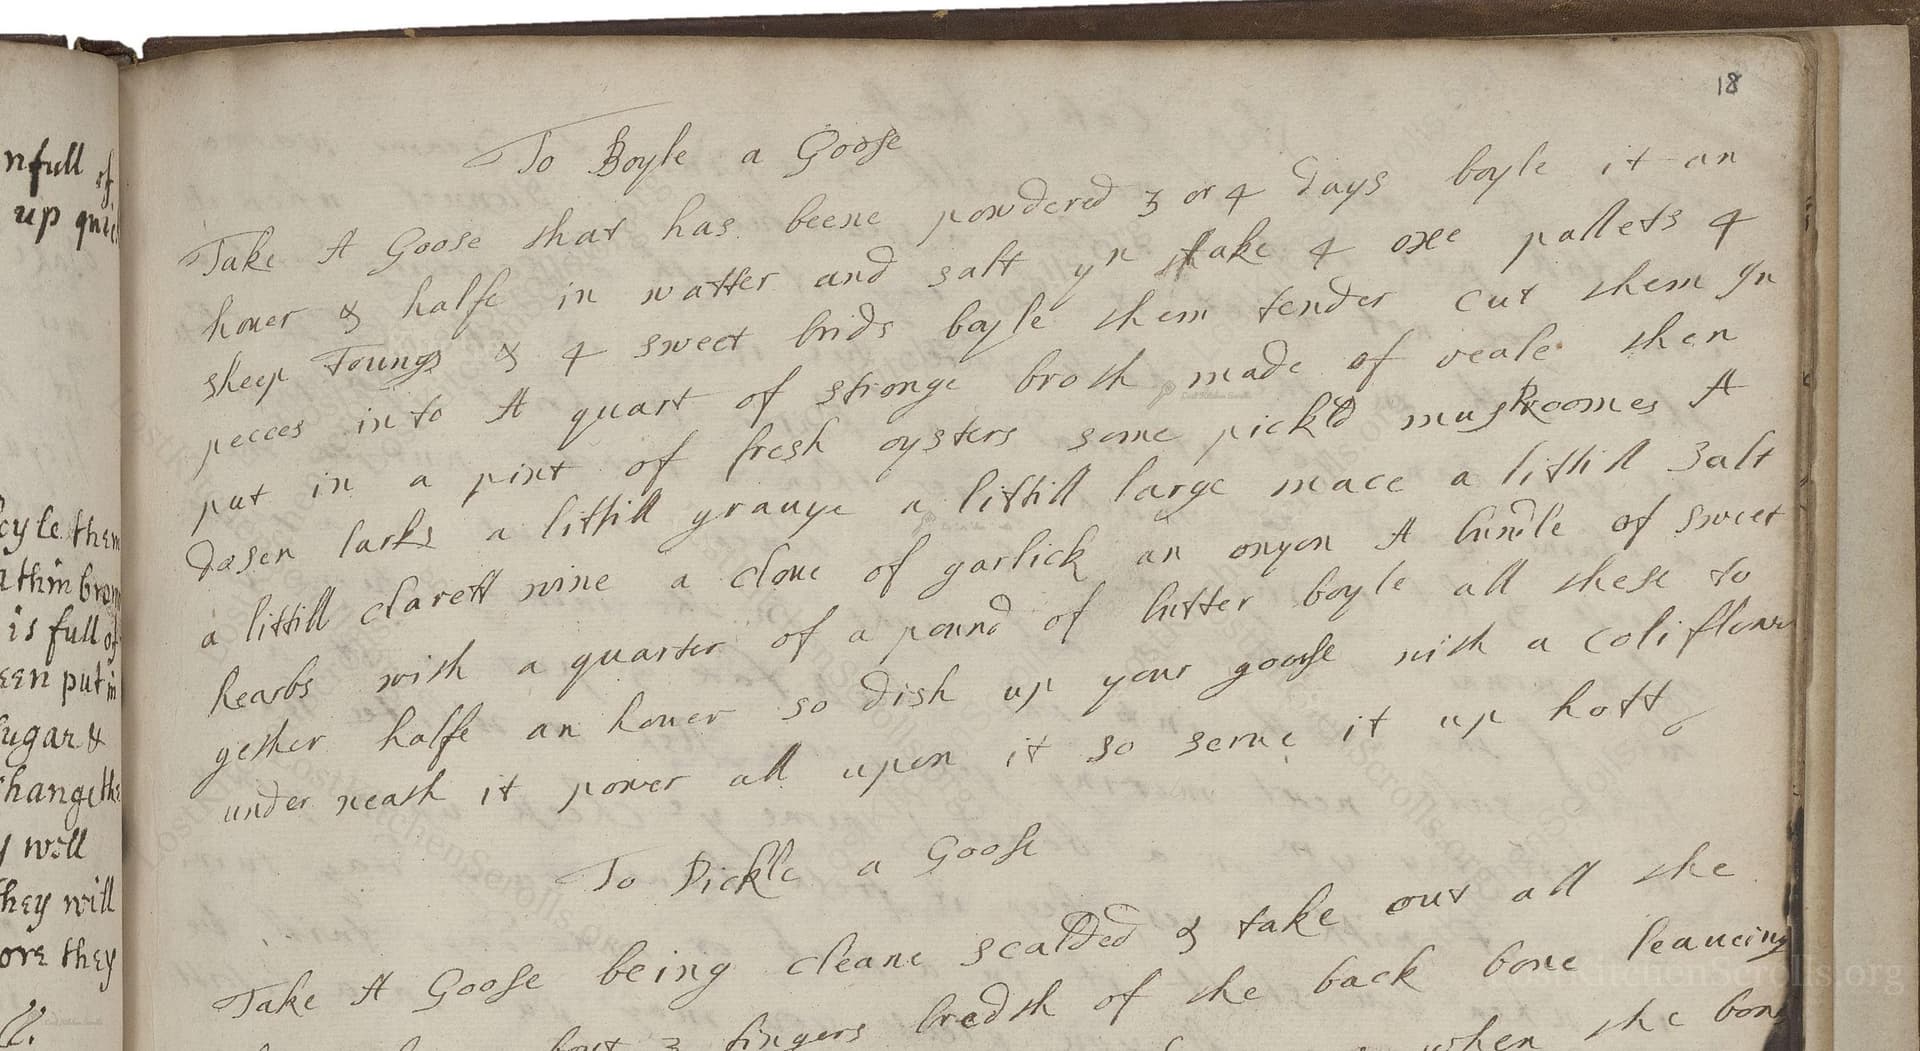 nfull of
up quic
oyle them
is full of
een put in
sugar &
change the
y will
they will
ore they
18
To Boyle a Goose
Take A Goose that has beene powdered 3 or 4 days boyle it an
houer & halfe in watter and salt yn take 4 oxe pallets 4
sheep Toungs & 4 sweet brids boyle them tender cut them In
pecces into A quart of stronge broth made of veale then
put in a pint of fresh oysters some pickld mushroomes A
dosen larks a littill gravye a littill large mace a littill salt
a littill clarett wine a clove of garlick an onyon A bundle of sweet
hearbs with a quarter of a pound of butter boyle all these to
gether halfe an houer so dish up your goose with a coliflower
under neath it power all upon it so serve it up hott
To Pickle a Goose
Take A Goose being cleane scalded & take out all the
3 fingers bredth of the back bone leaveing
when the bone
LostKitchenScrolls.org